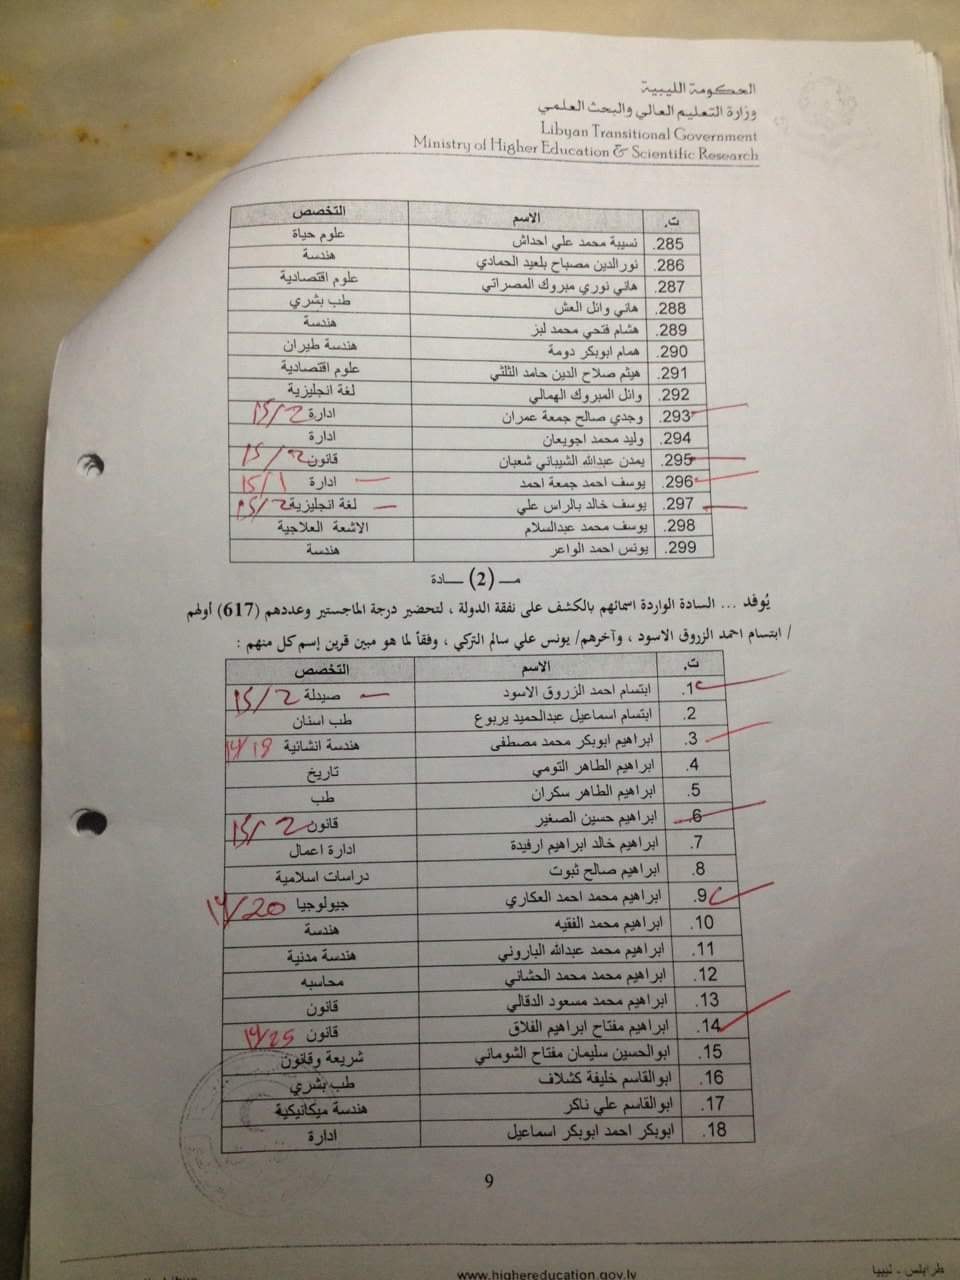 الحكومة الليبية
وزارة التعليم العالي والبحث العلمي
Libyan Transitional Government
Ministry of Higher Education & Scientific Research
ت. الاسم التخصص
285. نسيبة محمد علي احداش علوم حياة
286. نور الدين مصباح بلعيد الحمادي هندسة
287. هاني نوري مبروك المصراتي علوم اقتصادية
288. هاني وائل العش طب بشري
289. هشام فتحي محمد لبز هندسة
290. همام ابوبكر دومة هندسة طيران
291. هيثم صلاح الدين حامد الثلثي علوم اقتصادية
292. وائل المبروك الهمالي لغة انجليزية
293. وجدي صالح جمعة عمران ادارة 15/2
294. وليد محمد اجويعان ادارة
295. يمدن عبدالله الشيباني شعبان قانون 15/2
296. يوسف احمد جمعة احمد ادارة 15/1
297. يوسف خالد بالراس علي لغة انجليزية 15/2
298. يوسف محمد عبدالسلام الاشعة العلاجية
299. يونس احمد الواعر هندسة
مـــ (2) ـــادة
يُوفد ... السادة الواردة اسمائهم بالكشف على نفقة الدولة ، لتحضير درجة الماجستير وعددهم (617) أولهم
/ ابتسام احمد الزروق الاسود ، وآخرهم/ يونس علي سالم التركي ، وفقاً لما هو مبين قرين إسم كل منهم :
ت. الاسم التخصص
1. ابتسام احمد الزروق الاسود صيدلة 15/2
2. ابتسام اسماعيل عبدالحميد يربوع طب اسنان
3. ابراهيم ابوبكر محمد مصطفى هندسة انشائية 14/19
4. ابراهيم الطاهر التومي تاريخ
5. ابراهيم الطاهر سكران طب
6. ابراهيم حسين الصغير قانون 15/2
7. ابراهيم خالد ابراهيم ارفيدة ادارة اعمال
8. ابراهيم صالح ثبوت دراسات اسلامية
9. ابراهيم محمد احمد العكاري جيولوجيا 14/20
10. ابراهيم محمد الفقيه هندسة
11. ابراهيم محمد عبدالله الباروني هندسة مدنية
12. ابراهيم محمد محمد الحشاني محاسبه
13. ابراهيم محمد مسعود الدقالي قانون
14. ابراهيم مفتاح ابراهيم الفلاق قانون 14/25
15. ابوالحسين سليمان مفتاح الشوماني شريعة وقانون
16. ابوالقاسم خليفة كشلاف طب بشري
17. ابوالقاسم علي ناكر هندسة ميكانيكية
18. ابوبكر احمد ابوبكر اسماعيل ادارة
9
طرابلس - ليبيا www.highereducation.gov.ly